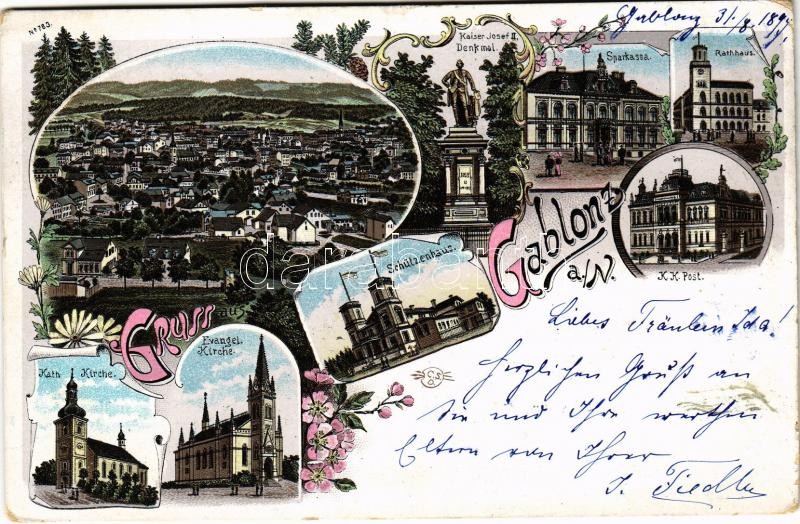 No 783.
Gablonz 31/8 189
Kaiser Josef II.
Denkmal.
Sparkassa.
Rathhaus.
Gablonz
a/N.
K.K. Post.
Schützenhaus.
Gruss aus
Kath. Kirche.
Evangel.
Kirche.
C.S.
darabanth
Liebes Fräulein Ida!
Herzlichen Gruß an
Sie und Ihre werthen
Eltern von Ihrer
J. Fiedler